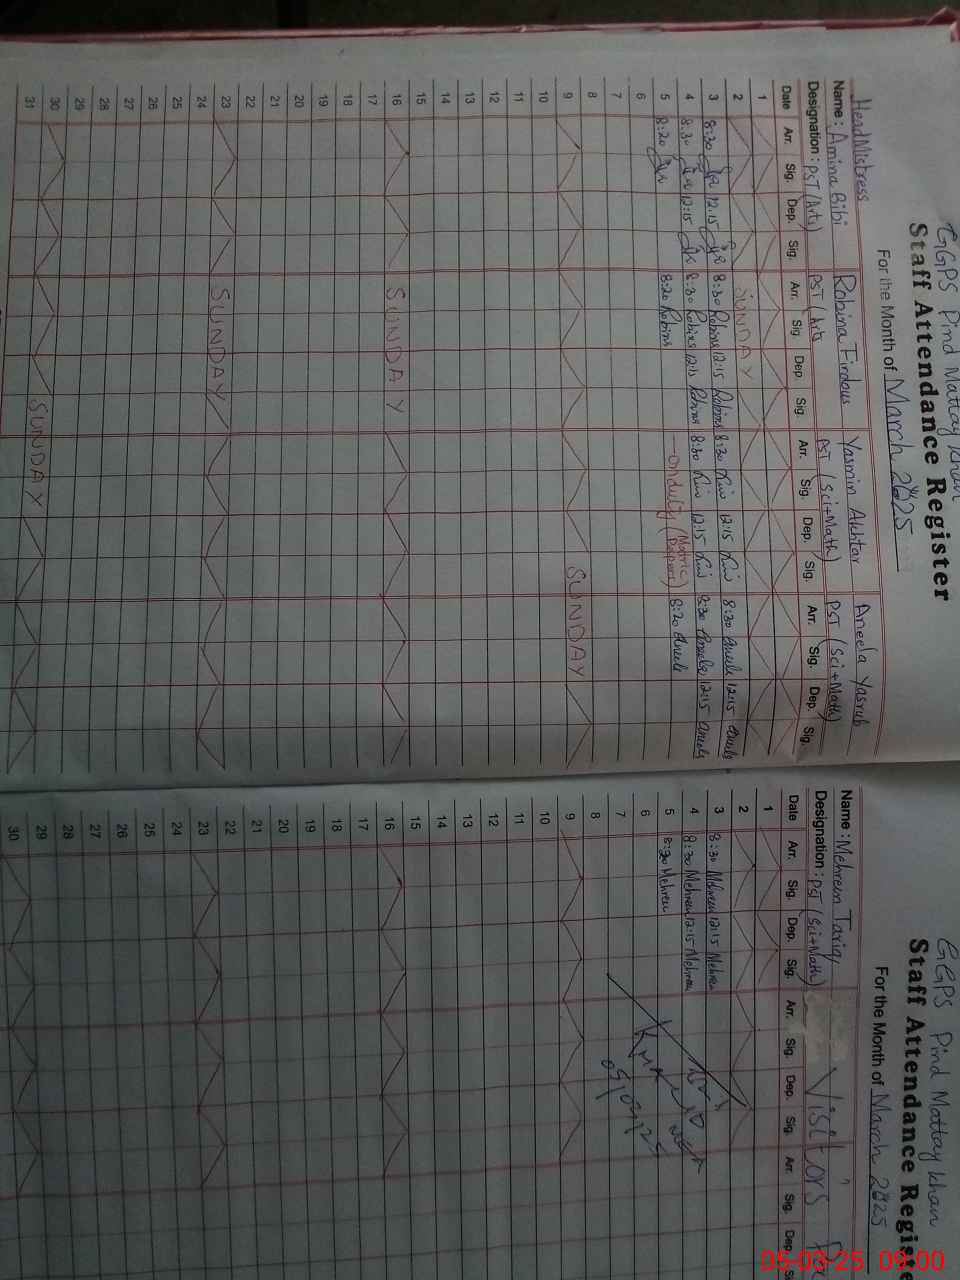 GGPS Pind Mattay Khan
Staff Attendance Register
For the Month of March 2025
HeadMistress
Name : Amina Bibi Robina Firdous Yasmin Akhtar Aneela Yasrub
Designation : PST (Arts) PST (Arts PST (Sci+Math) PST (Sci+Math)
Date Arr. Sig. Dep. Sig. Arr. Sig. Dep. Sig. Arr. Sig. Dep. Sig. Arr. Sig. Dep. Sig.
1
2 SUNDAY
3 8:30 12:15 8:30 Robina 12:15 Robina 8:30 12:15 8:30 Aneela 12:15 Aneela
4 8:30 12:15 8:30 Robina 12:15 Robina 8:30 12:15 8:30 Aneela 12:15 Aneela
5 8:20 8:20 Robina onduty (Matric Paper) 8:20 Aneela
6
7
8
9 SUNDAY
10
11
12
13
14
15
16 SUNDAY
17
18
19
20
21
22
23 SUNDAY
24
25
26
27
28
29
30 SUNDAY
31
GGPS Pind Mattay Khan
Staff Attendance Regis
For the Month of March 2025
Name : Mehreen Tariq "
Designation : PST (Sci+Math) Visitors
Date Arr. Sig. Dep. Sig. Arr. Sig. Dep. Sig. Arr. Sig. Dep. S
1
2
3 8:30 Mehreen 12:15 Mehreen
4 8:30 Mehreen 12:15 Mehreen
5 8:20 Mehreen
6
7 05/03/25
8
9
10
11
12
13
14
15
16
17
18
19
20
21
22
23
24
25
26
27
28
29
30
05-03-25 09:00